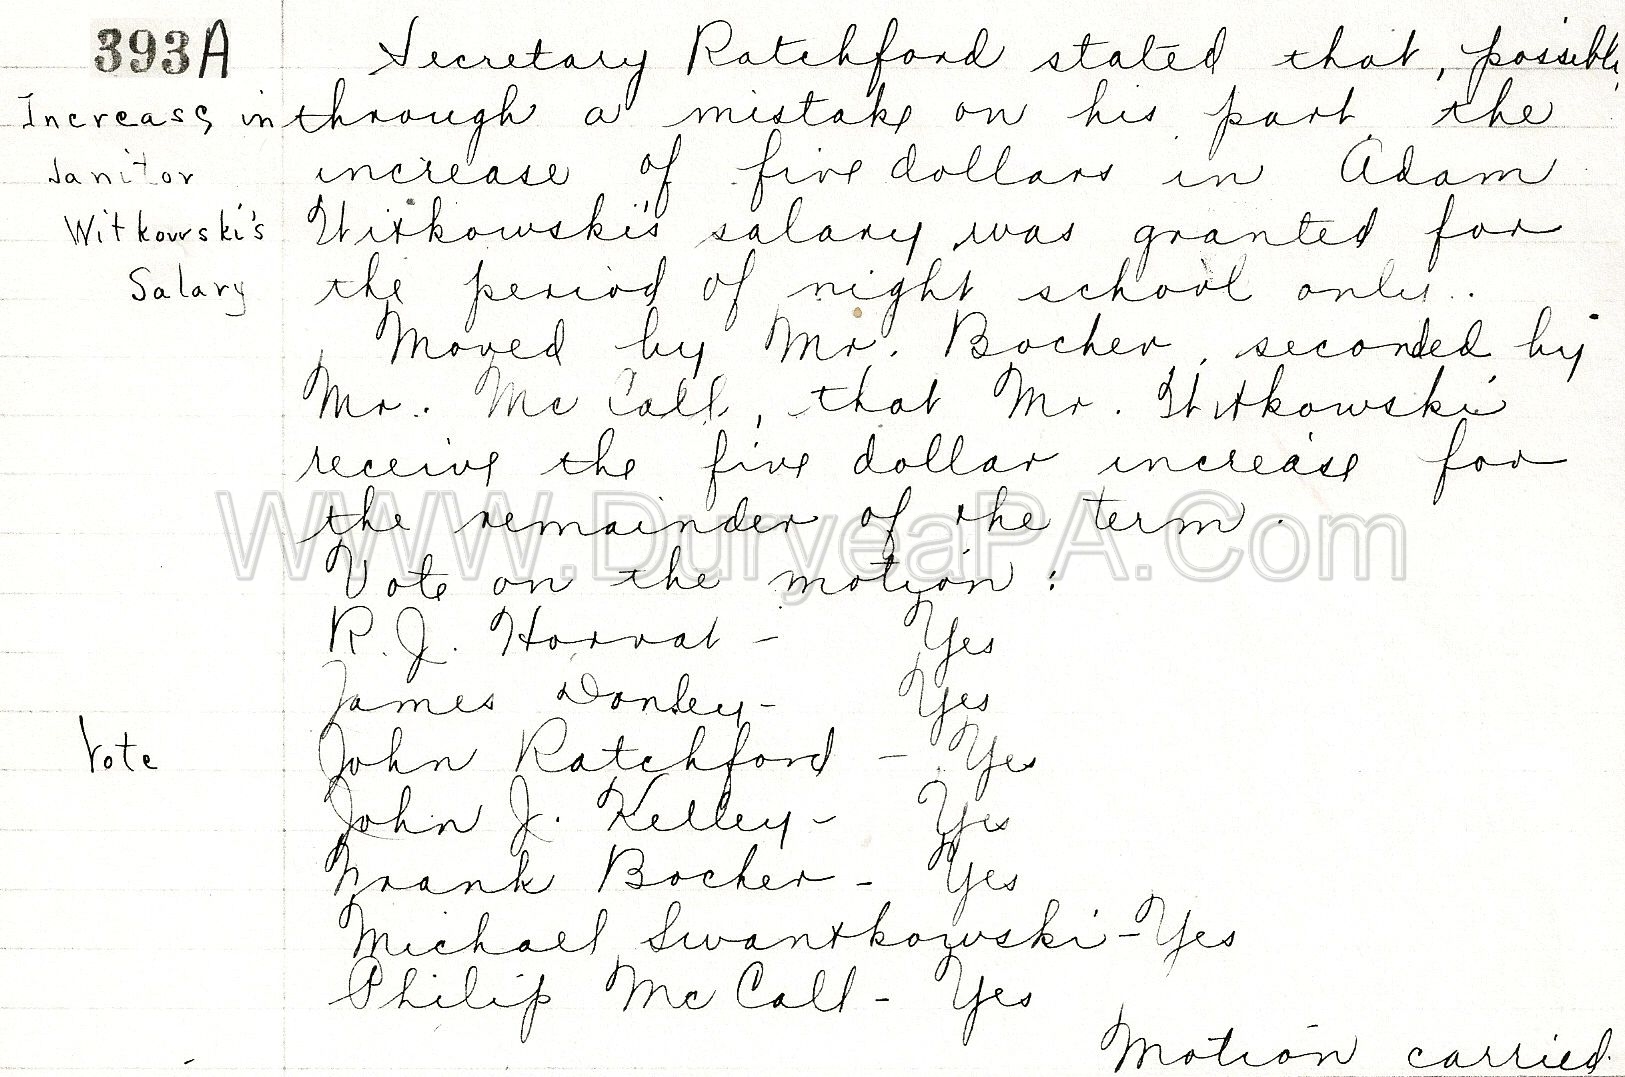 393A
Increase in
Janitor
Witkowski's
Salary
Secretary Ratchford stated that, possible,
through a mistake on his part, the
increase of five dollars in Adam
Witkowski's salary was granted for
the period of night school only.
Moved by Mr. Bocher, seconded by
Mr. McCall, that Mr. Witkowski
receive the five dollar increase for
the remainder of the term.
WWW.DuryeaPA.Com
Vote on the motion:
R. J. Horvat - Yes
James Donley - Yes
Vote
John Ratchford - Yes
John J. Kelley - Yes
Frank Bocher - Yes
Michael Swantkowski - Yes
Philip McCall - Yes
Motion carried.